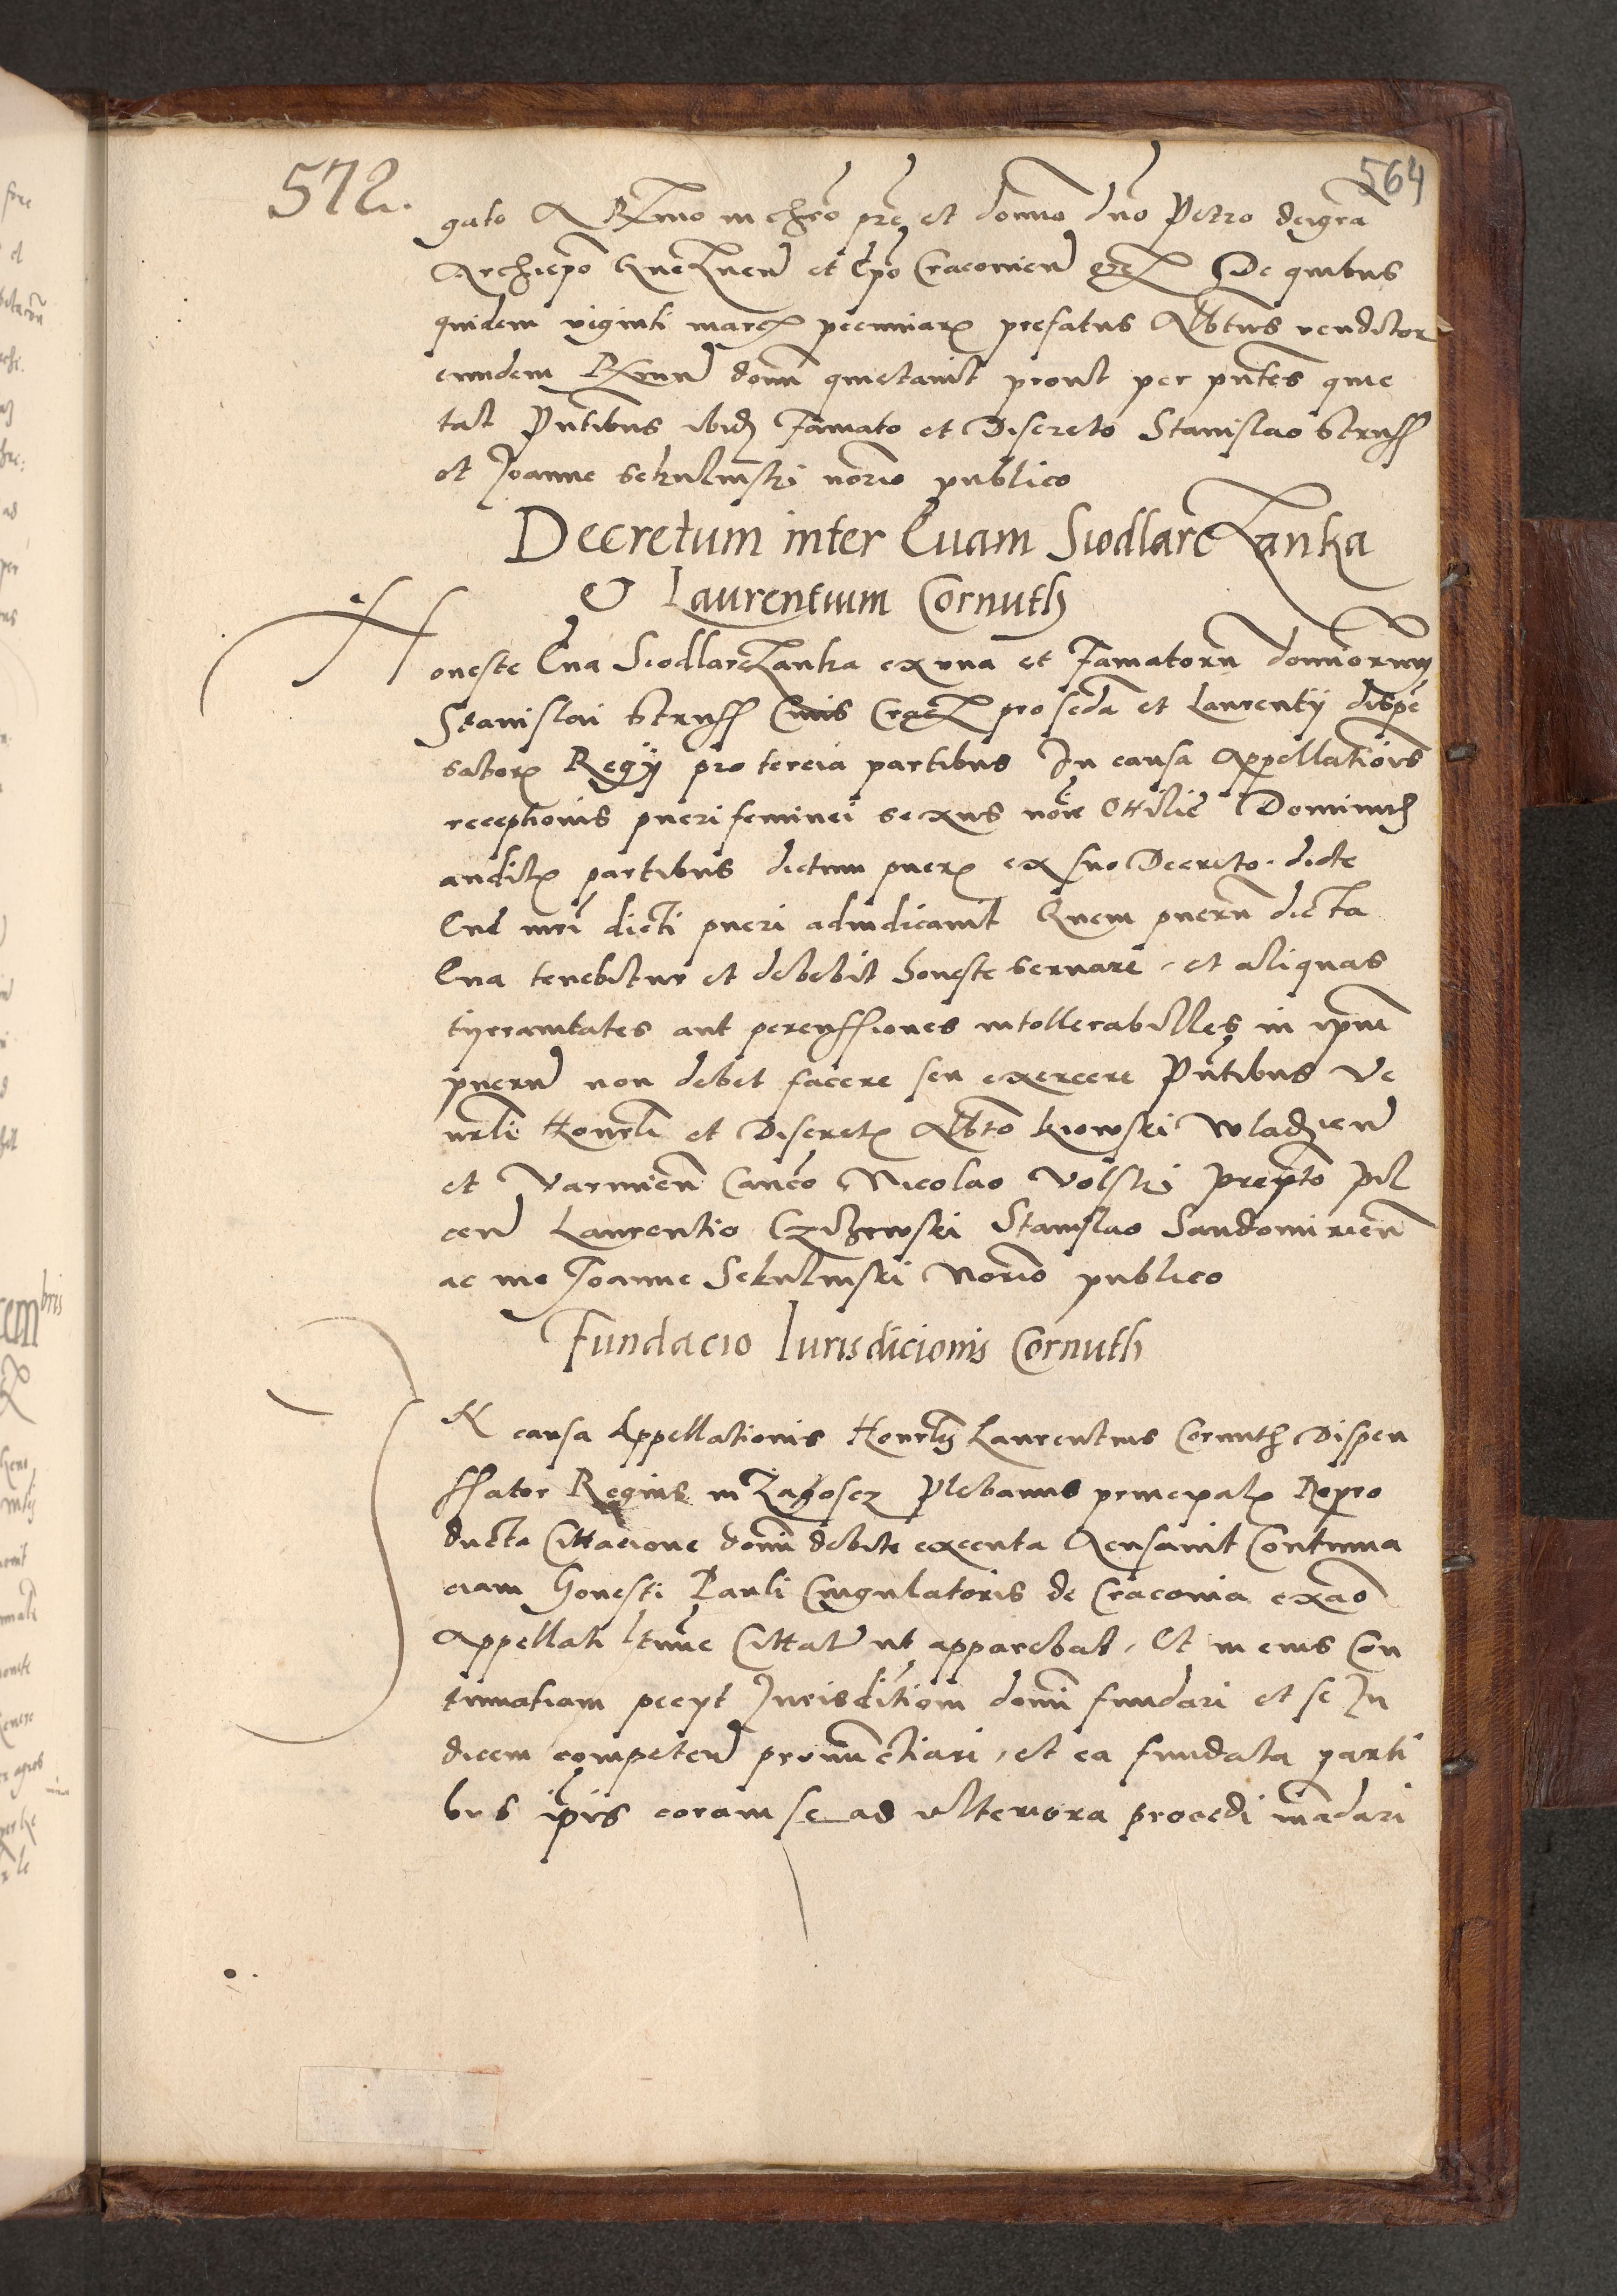 572.
564
gato A Rxmo in chro pre et domno dno Petro dei gra
Archiepo Gneznen et Epo Cracovien etc De quibus
quidem viginti marcis pecuniar prefatus Albtus venditor
eundem Rxmum dnum quietavit prout per pntes quie
tat Pntibus ibid Famato et Discreto Stanislao Struss
et Joanne Sekulinski norio publico
Decretum inter Evam Siodlarczanka
et Laurentium Cornuth
Honeste Eva Siodlarczanka ex una et Famatorum domnorum
Stanislai Struss Civis Crac pro secda et Laurentij dispe
satoris Regij pro tercia partibus In causa Appellationis
receptionis pueri feminei sexus noie Ottilie Dominus
auditis partibus dictum puerum ex suo Decreto dicte
Eve mri dicti pueri adiudicavit Quem puerum dicta
Eva tenebitur et debebit honeste servare et aliquas
tyrranitates aut percussiones intollerabilles in ipum
puerum non debet facere seu exercere Pntibus Ve
nrli Honrli et Discretis Albto Kiowski Wladzien
et Varmien Canco Nicolao Volski Prepto Pil
cen Laurentio Czizewski Stanislao Sandomirien
ac me Joanne Sekulinski Norio publico
Fundacio Iurisdicionis Cornuth
IN causa Appellationis Honrlis Laurentius Cornuth Dispen
ssator Regius in Zagosez Plebanus principalis Repro
ducta Cittacione domi debite executa Acusavit Contuma
ciam Honesti Pauli Cingulatoris de Cracovia ex ao
Appellati ltime Cittati ut apparebat. Et in eius Con
tumatiam pecyt Jurisditiom domi fundari et se Ju
dicem competen pronunctiari, et ea fundata parti
bus ipis coram se ad ulteriora procedi madari